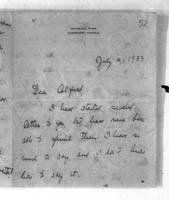 52
July 4, 1933
Dear Alfred
I have started several
letters to you but have never been
able to finish them I have so
much to say and I don't know
how to say it.